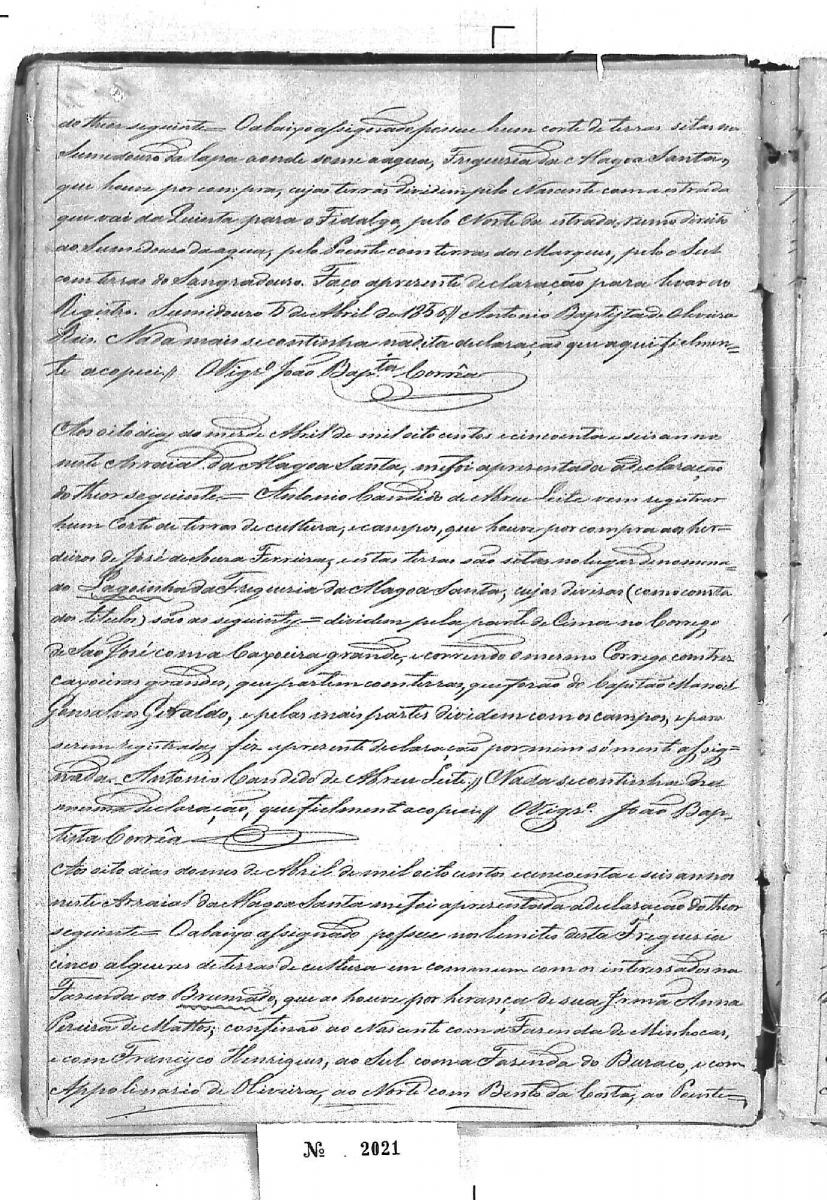 do theor seguinte = O abaixo assignado possue hum corte de terras sitas no
Sumidouro da Lapa aonde some a agua, Freguesia da Alagoa Santa,
que houve por compra, cujas terras dividem pelo Nascente com a estrada
que vai da Quinta para o Fidalgo, pelo Norte da estrada, rumo direito
ao Sumidouro da agua, pelo Poente com terras dos Marques, pelo Sul
com terras do Sangradouro. Faço apresente declaração para levar ao
Registro. Sumidouro 5 de Abril de 1856 // Antonio Baptista de Oliveira
Reis. Nada mais se continha na dita declaração que aqui fielmen=
te a copiei // O Vigr.º João Bap.ta Corrêa
Aos oito dias do mes de Abril de mil oito centos e cincoenta e seis annos
neste Arraial da Alagoa Santa, me foi apresentada a declaração
do theor seguinte = Antonio Candido de Abreu Leite vem registrar
hum Corte de terras de cultura, e campos, que houve por compra aos her=
deiros de José de Souza Ferreira, e estas terras são sitas no lugar denomina=
do Lagoinha da Freguesia da Alagoa Santa, cujas divisas (como consta
dos titulos) são as seguintes = dividem pela parte de Cima no Corrego
de São José com a Caxoeira grande, e correndo o mesmo Corrego com tres
caxoeiras grandes, que partem com terras, que forão do Capitão Manoel
Gonsalves Giraldo, e pelas mais partes dividem com os campos, e para
serem registradas fiz apresente declaração por mim sómente assig=
nada. Antonio Candido de Abreu Leite // Nada se continha na
mesma declaração, que fielmente a copiei // O Vigr.º João Bap=
tista Corrêa
Aos oito dias do mes de Abril de mil oito centos e cincoenta e seis annos
neste Arraial da Alagoa Santa me foi apresentada a declaração do theor
seguinte = O abaixo assignado possue nos lemites desta Freguesia
cinco alqueres de terras de cultura em commum com os interessados na
Fazenda do Brumado, que as houve por herança de sua Irmã Anna
Pereira de Mattos; confinão ao Nascente com a Fazenda de Minhocas,
e com Francisco Henriques, ao Sul com a Fazenda do Buraco, e com
Appolinario de Oliveira, ao Norte com Bento da Costa, ao Poente
Nº 2021